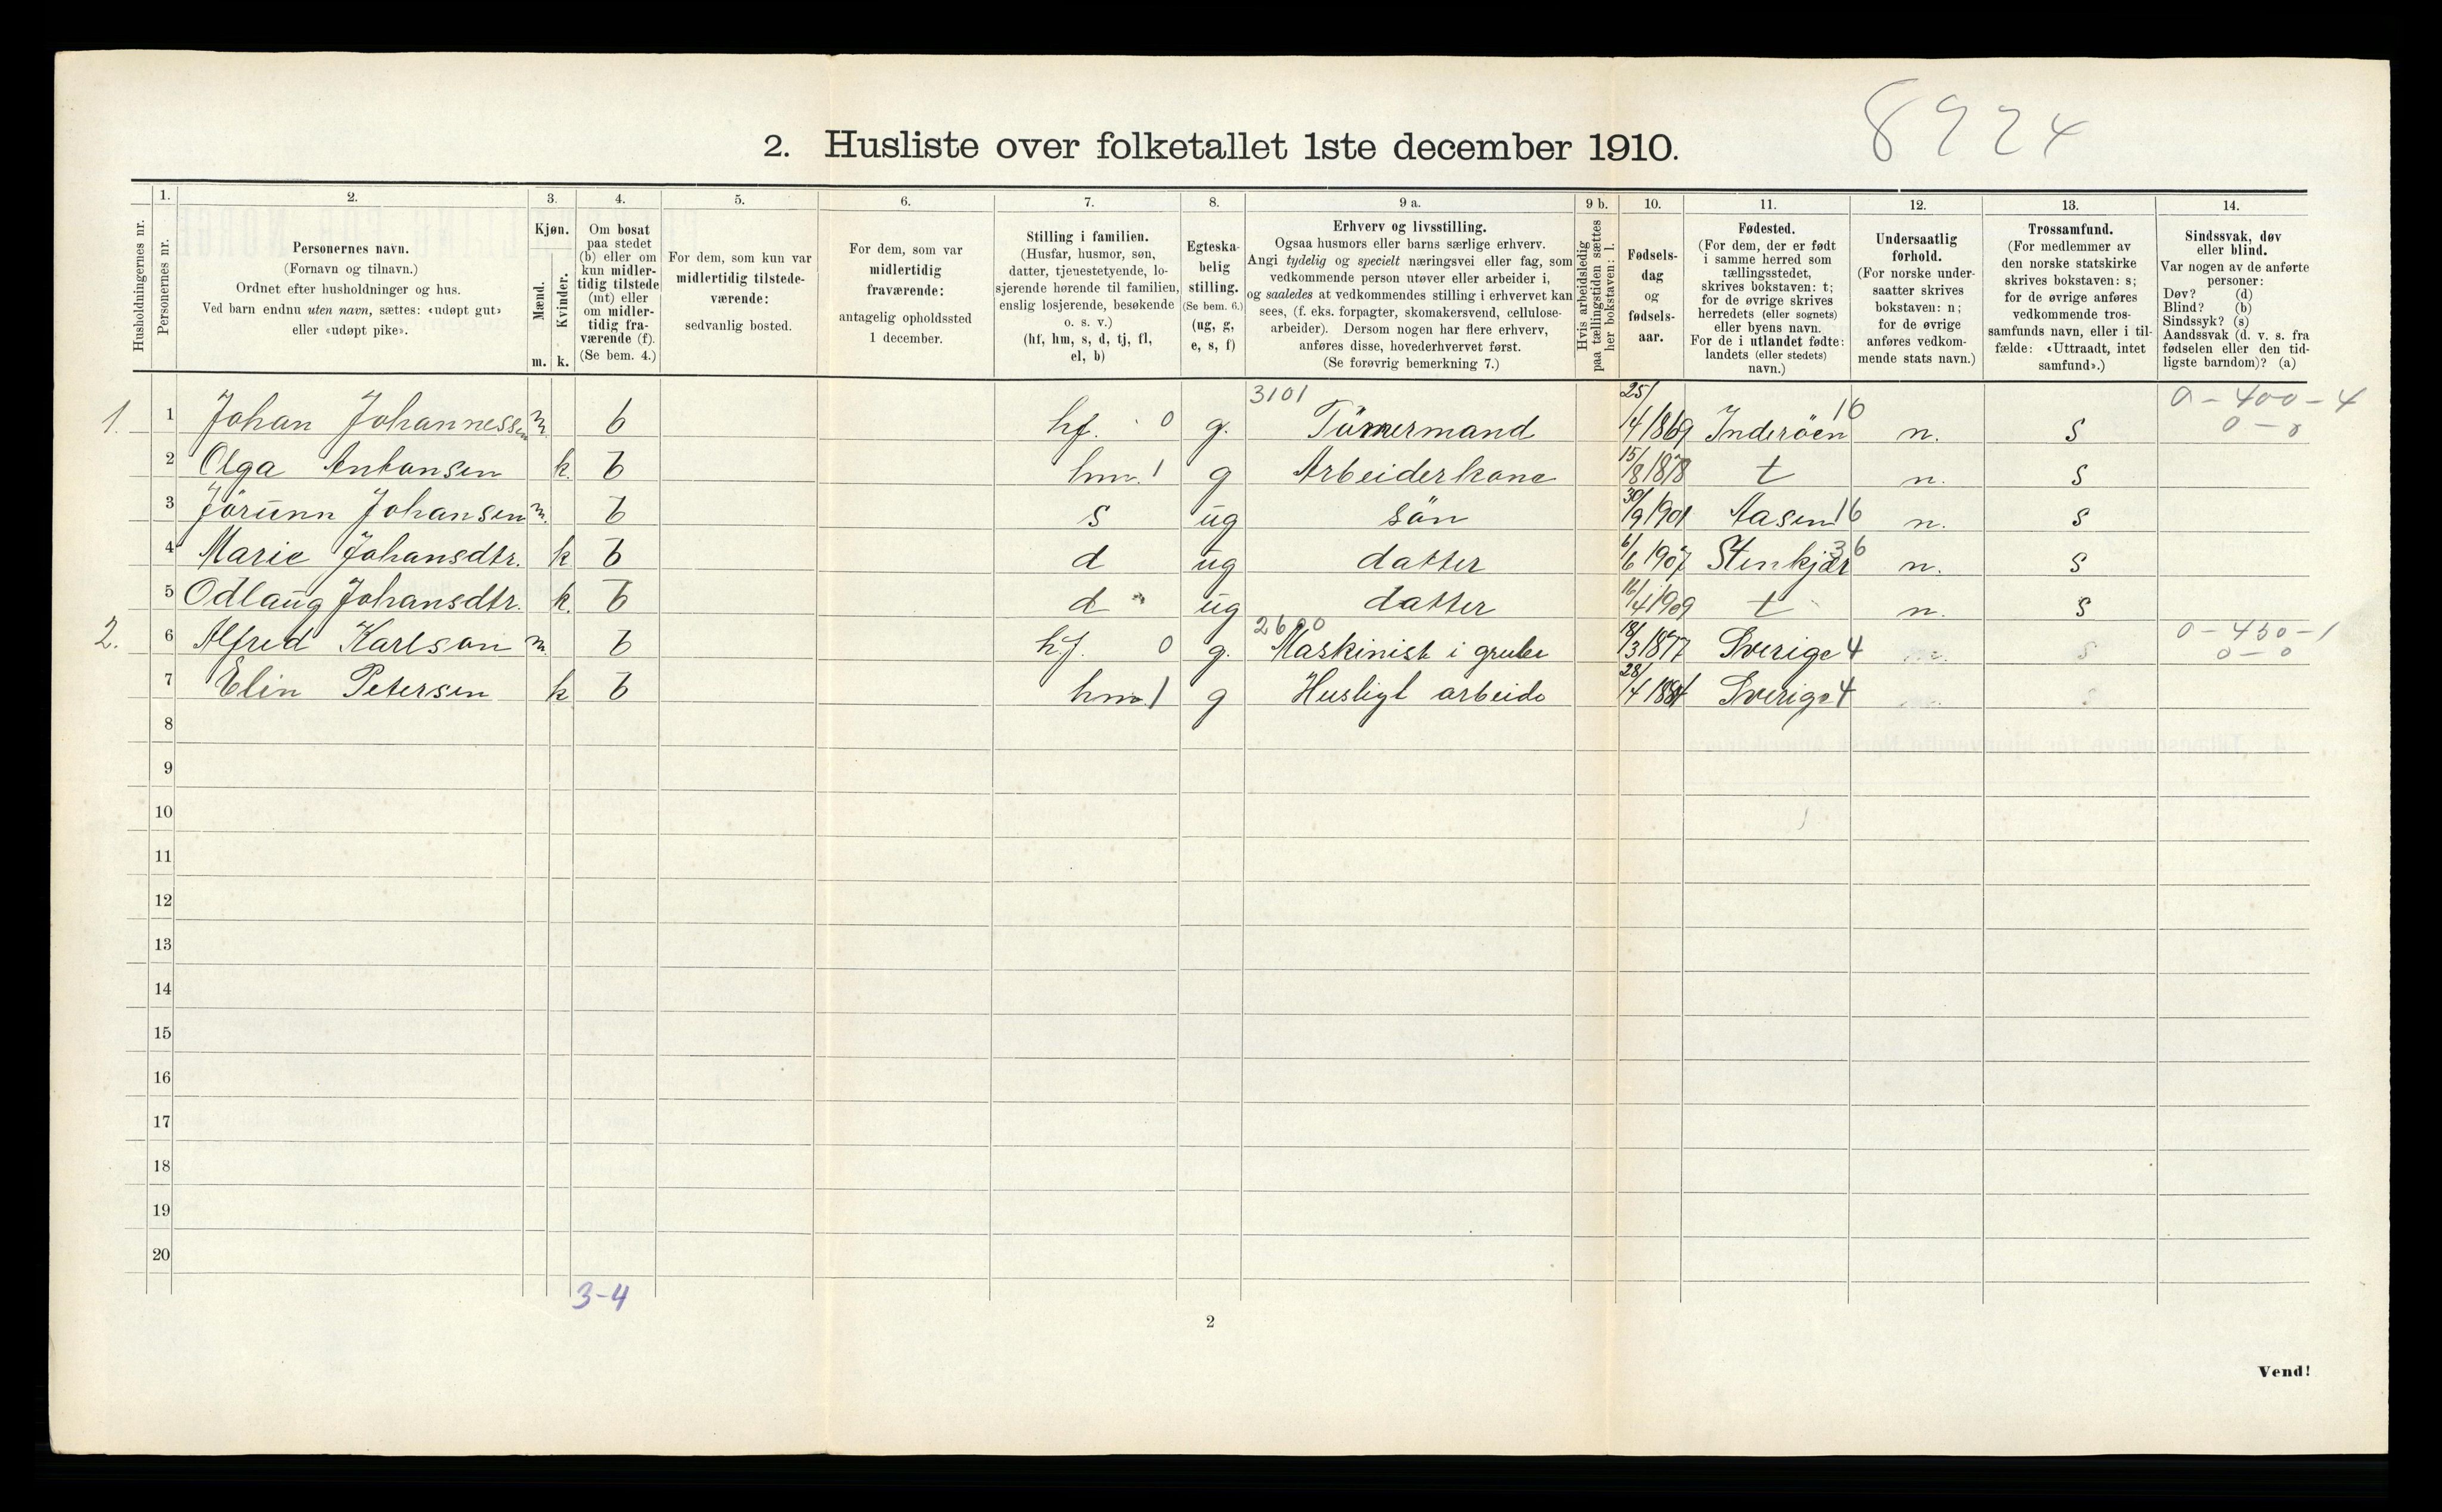 8924
2. Husliste over folketallet 1ste december 1910.
Husholdningernes nr.
1. Personernes nr.
2. Personernes navn. (Fornavn og tilnavn.) Ordnet efter husholdninger og hus. Ved barn endnu uten navn, sættes: «udøpt gut» eller «udøpt pike».
3. Kjøn. Mænd. m. Kvinder. k.
4. Om bosat paa stedet (b) eller om kun midlertidig tilstede (mt) eller om midlertidig fraværende (f). (Se bem. 4.)
5. For dem, som kun var midlertidig tilstedeværende: sedvanlig bosted.
6. For dem, som var midlertidig fraværende: antagelig opholdssted 1 december.
7. Stilling i familien. (Husfar, husmor, søn, datter, tjenestetyende, losjerende hørende til familien, enslig losjerende, besøkende o. s. v.) (hf, hm, s, d, tj, fl, el, b)
8. Egteskabelig stilling. (Se bem. 6.) (ug, g, e, s, f)
9 a. Erhverv og livsstilling. Ogsaa husmors eller barns særlige erhverv. Angi tydelig og specielt næringsvei eller fag, som vedkommende person utøver eller arbeider i, og saaledes at vedkommendes stilling i erhvervet kan sees, (f. eks. forpagter, skomakersvend, cellulosearbeider). Dersom nogen har flere erhverv, anføres disse, hovederhvervet først. (Se forøvrig bemerkning 7.)
9 b. Hvis arbeidsledig paa tællingstiden sættes her bokstaven: l.
10. Fødselsdag og fødselsaar.
11. Fødested. (For dem, der er født i samme herred som tællingsstedet, skrives bokstaven: t; for de øvrige skrives herredets (eller sognets) eller byens navn. For de i utlandet fødte: landets (eller stedets) navn.)
12. Undersaatlig forhold. (For norske undersaatter skrives bokstaven: n; for de øvrige anføres vedkommende stats navn.)
13. Trossamfund. (For medlemmer av den norske statskirke skrives bokstaven: s; for de øvrige anføres vedkommende trossamfunds navn, eller i tilfælde: «Uttraadt, intet samfund».)
14. Sindssvak, døv eller blind. Var nogen av de anførte personer: Døv? (d) Blind? (b) Sindssyk? (s) Aandssvak (d. v. s. fra fødselen eller den tidligste barndom)? (a)
1. 1 Johan Johannessen m. b hf. 0 g. 3101 Tömermand 25/4 1869 Inderöen 16 n. s 0-400-4 0-0
2 Olga Antonsen k. b hm. 1 g Arbeiderkone 15/8 1878 t n. s
3 Jörunn Johansen m. b s ug sön 30/9 1901 Aasen 16 n. s
4 Marie Johansdtr. k b d ug datter 6/6 1907 Stenkjær 36 n. s
5 Odlaug Johansdtr. k. b d ug datter 16/4 1909 t n. s
2. 6 Alfred Karlson m. b hf. 0 g. 2600 Maskinist i grube 18/3 1877 Sverige 4 n. s 0-450-1 0-0
7 Elin Petersen k b hm 1 g Husligt arbeide 28/4 1884 Sverige 4 n. s
8
9
10
11
12
13
14
15
16
17
18
19
20
3-4
2
Vend!